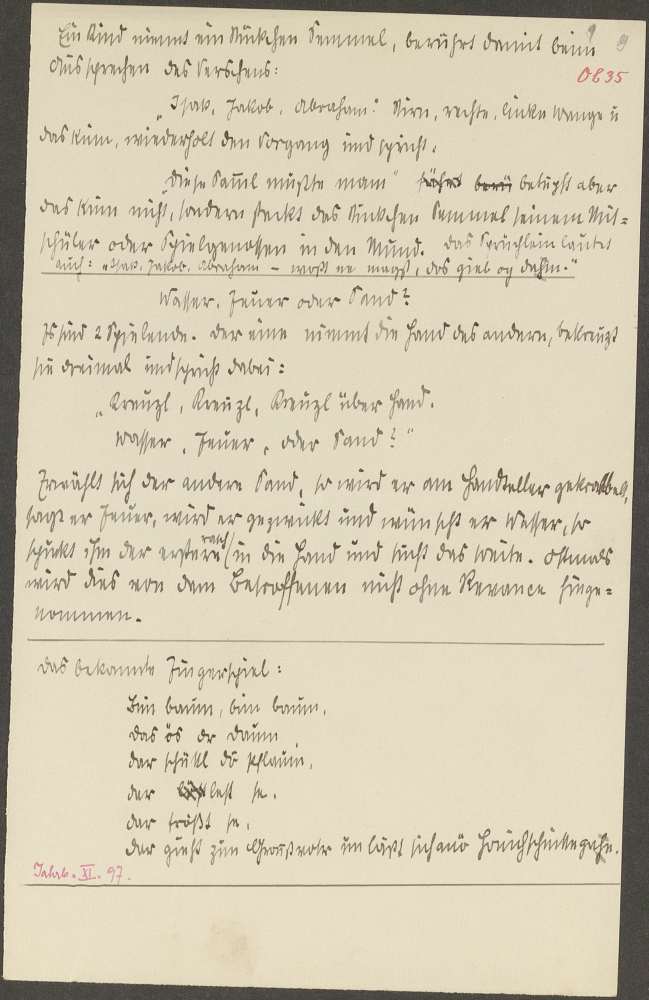 9 9
Ein Kind nimmt ein Stückchen Semmel, berührt damit beim
Aussprechen des Verschens:
OL35
„Isak, Jakob, Abraham“ Stirn, rechte, linke Wange u
das Kinn, wiederholt den Vorgang und spricht:
„Diese Samml mußte mam“ berü betupft aber
das Kinn nicht, sondern steckt das Stückchen Semmel seinem Mit-
schüler oder Spielgenossen in den Mund. Das Sprüchlein lautet
auch: „Isak, Jakob, Abraham – woßt ne magst, dos gieb og dahm.“
Wasser, Feuer oder Sand?
Es sind 2 Spielende. Der eine nimmt die Hand des andern, bekreuzt
sie dreimal und spricht dabei:
„Kreuzl, Kreuzl, Kreuzl über Hand.
Wasser, Feuer, oder Sand?“
Erwählt sich der andere Sand, so wird er am Handteller gekrabbelt,
sagt er Feuer, wird er gezwickt und wünscht er Wasser, so
spuckt ihm der erstere rasch in die Hand und sucht das Weite. Oftmals
wird dies von dem Betroffenen nicht ohne Revance hinge-
nommen.
Das bekannte Fingerspiel:
Bim baum, bim baum,
das ös dr Daum
dar schükl de Pflaum,
dar lest se,
dar frößt se,
dar gieht zum Großvotr un läßt sich auö Hönichschnitte gahn.
Jahrb. XI. 97.